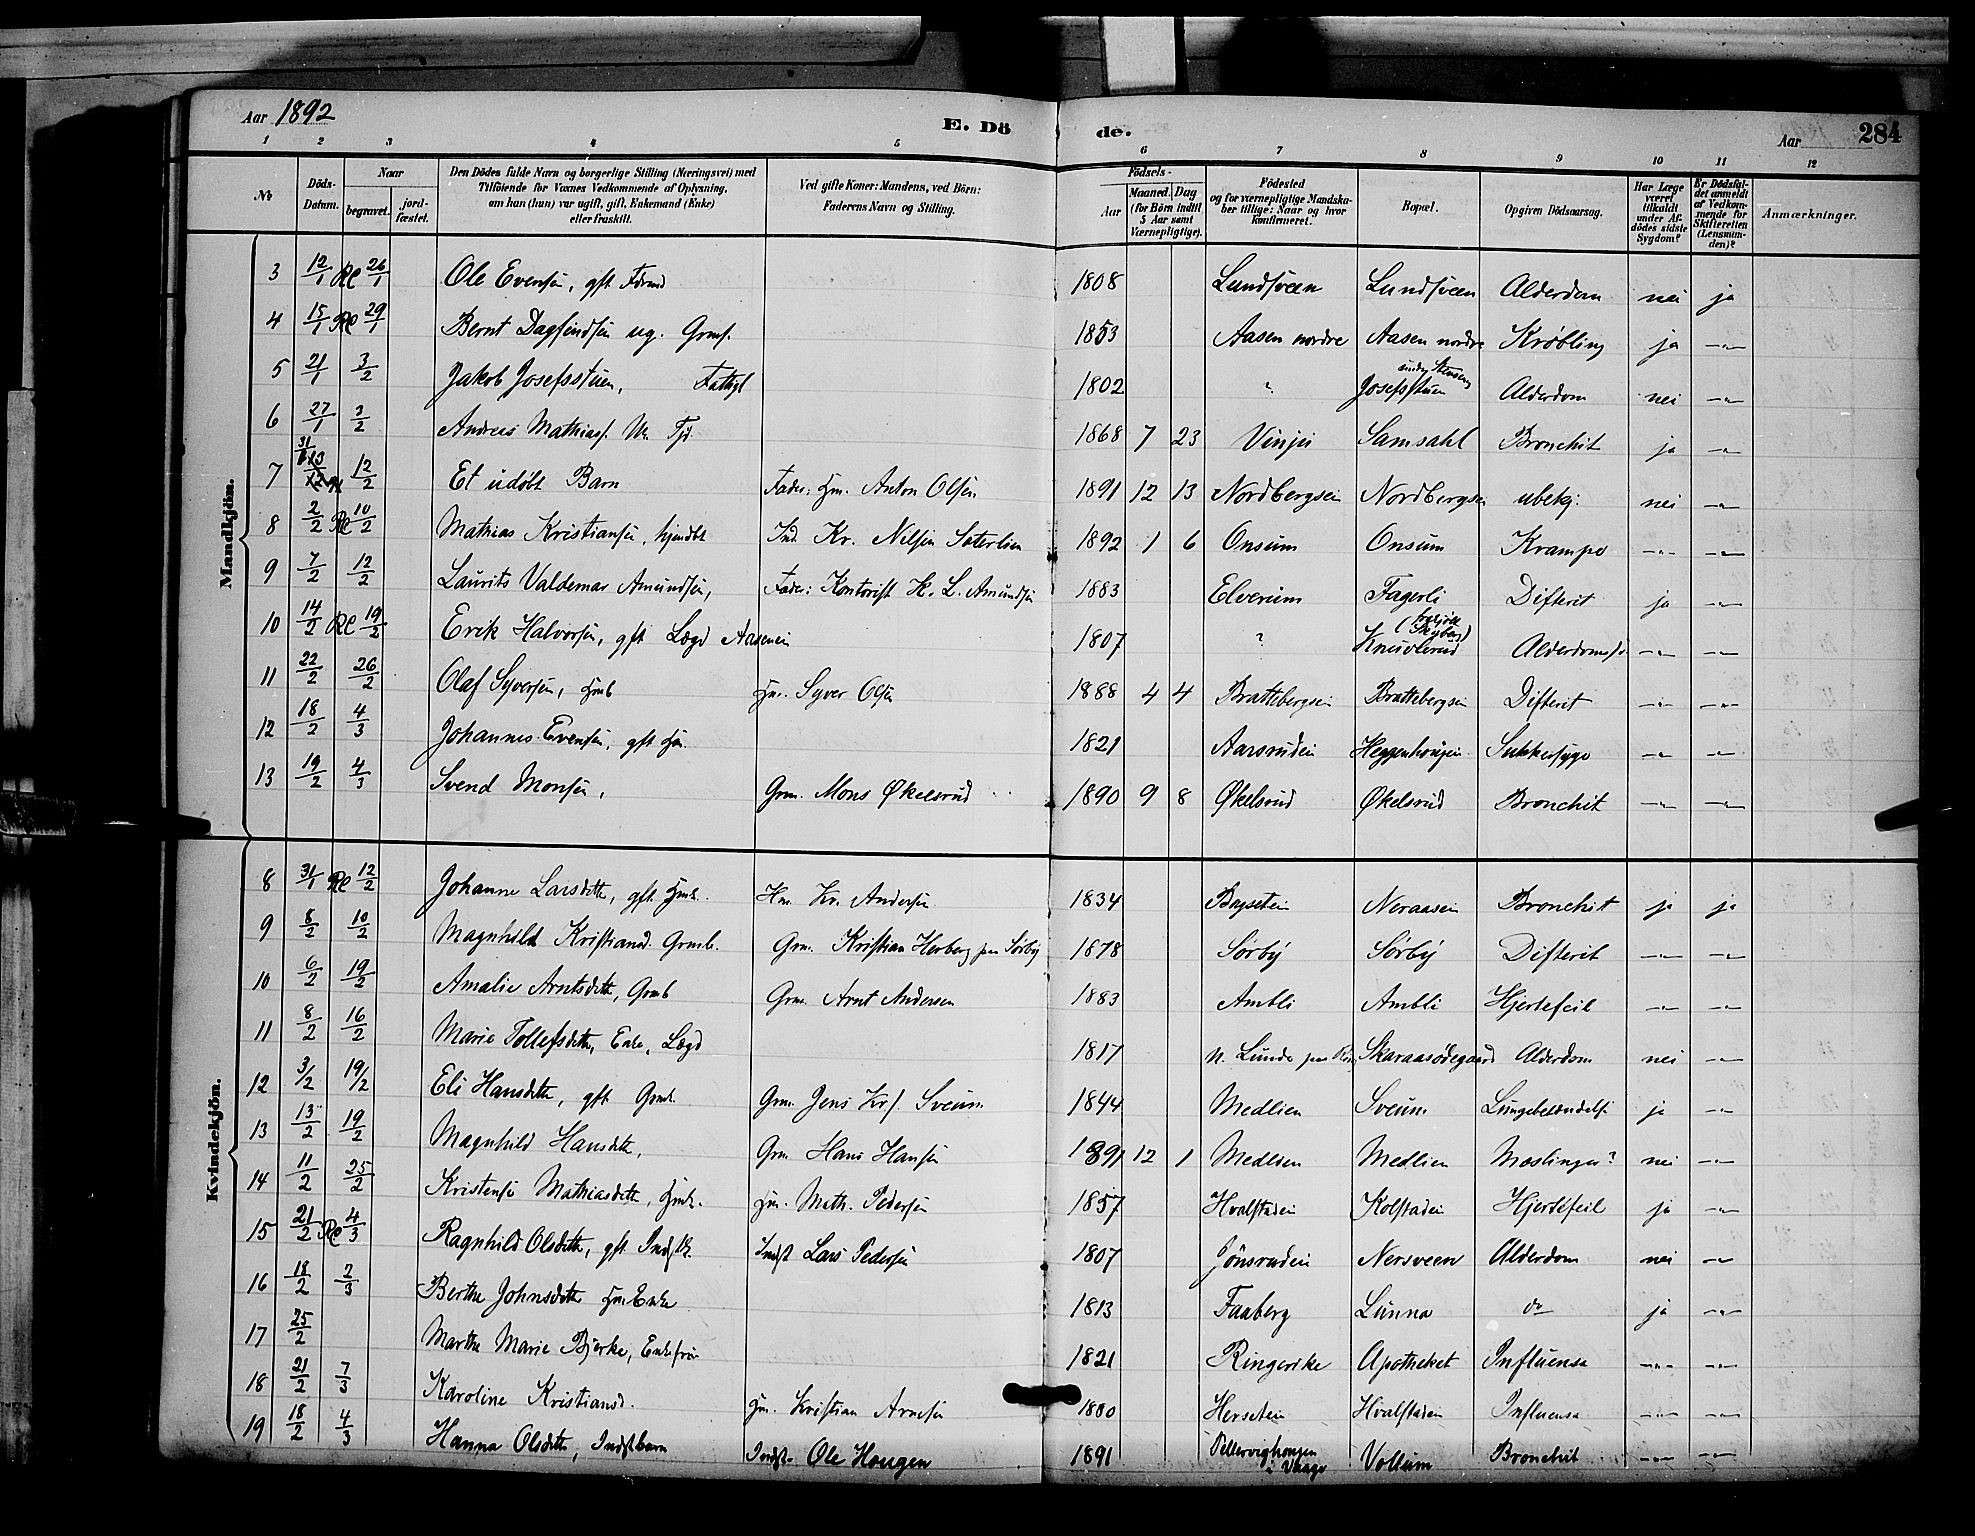 Aar 1892 E. Dö de. Aar 284
1 2 3 4 5 6 7 8 9 10 11 12
No. Döds-Datum. Naar begravet. jordfæstet. Den Dödes fulde Navn og borgerlige Stilling (Næringsvei) med Tilföiende for Voxnes Vedkommende af Oplysning, om han (hun) var ugift, gift, Enkemand (Enke) eller fraskilt. Ved gifte Koner: Mandens, ved Börn: Faderens Navn og Stilling. Födsels- Aar Maaned. Dag (for Börn indtil 5 Aar samt Værnepligtige). Födested og for værnepligtige Mandskaber tillige: Naar og hvor konfirmeret. Bopæl. Opgiven Dödsaarsag. Har Læge været tilkaldt under Afdödes sidste Sygdom? Er Dödsfaldet anmeldt af Vedkommende for Skifteretten (Lensmanden)? Anmærkninger.
Mandkjön.
3 12/1 26/1 Ole Evensen, gft 1808 Lundsveen Lundsveen Alderdom nei ja
4 15/1 29/1 Bernt Dagfindsen ug. Grmf. 1853 Aasen nordre Aasen nordre Krøbling ja -"-
5 21/1 3/2 Jakob Josefsstuen, 1802 Josefsstuen Alderdom nei -"-
6 27/1 3/2 Andreas Mathiass. 1868 7 23 Samsahl Bronchit ja -"-
7 31/1 12/2 Et udøbt Barn Fader: Hm. Anton Olsen 1891 12 13 Nordbergsen Nordbergsen ubekj. nei -"-
8 2/2 10/2 Mathias Kristiansen, hjmdbt Ind. Kr. Nilsen Sæterlien 1892 1 6 Onsum Onsum Krampe -"- -"-
9 7/2 12/2 Laurits Valdemar Amundsen, Fader: Kontorist H. L. Amundsen 1883 Elverum Fagerli Difterit ja -"-
10 14/2 19/2 Erik Halvorsen, gft Lægd Aaseneie 1807 ? Knuvlerud Alderdoms -"- -"-
11 22/2 26/2 Olaf Syversen, Hmb Hm. Syver Olsen 1888 4 4 Brattebergsen Brattebergsen Difterit -"- -"-
12 18/2 4/3 Johannes Evensen, gft Hm. 1821 Aarsrudeie Heggenhougen Sukkersyge -"- -"-
13 19/2 4/3 Svend Monsen, Grm. Mons Økelsrud 1890 9 8 Økelsrud Økelsrud Bronchit -"- -"-
Kvindekjön.
8 31/1 12/2 Johanne Larsdtr, gft Hmk. Hm. Kr. Andersen 1834 Neraasen Bronchit ja ja
9 8/2 10/2 Magnhild Kristiansd. Grmb. Grm. Kristian Herberg paa Sørby 1878 Sørby Sørby Difterit -"- -"-
10 6/2 19/2 Amalie Arntsdtr, Grmb Grm. Arnt Andersen 1883 Ambli Ambli Hjertefeil -"- -"-
11 8/2 16/2 Marie Tollefsdtr, Enke, Lægd 1817 N. Lunde paa Skaraasødegaard Alderdom nei -"-
12 3/2 19/2 Eli Hansdtr, gft Grmk. Grm. Jens Krs. Sveum 1844 Medlien Sveum Lungebetændelse ja -"-
13 13/2 19/2 Magnhild Hansdtr, Grm Hans Hansen 1891 12 1 Medlien Medlien Meslinger? nei -"-
14 11/2 25/2 Mathiasdtr, Hmk. Hm. Math. Pedersen 1857 Hvalstadeie Kolstadeie Hjertefeil ja -"-
15 21/2 4/3 Ragnhild Olsdtr, gft Indstk. Indst Lars Pedersen 1807 Jønsrudeie Nersveen Alderdom nei -"-
16 18/2 2/3 Berthe Johnsdtr Hm Enke 1813 Faaberg Lunna do ja -"-
17 25/2 Marthe Marie Bjerke, Enkefru 1821 Ringerike Apotheket Influensa -"- -"-
18 21/2 7/3 Karoline Kristiansd. Hm. Kristian Arnesen 1880 Herseteie Hvalstadeie Influensa -"- -"-
19 18/2 4/3 Hanna Olsdtr, Indstbarn Indst. Ole Hougen 1891 i Vaage Vollum Bronchit -"- -"-